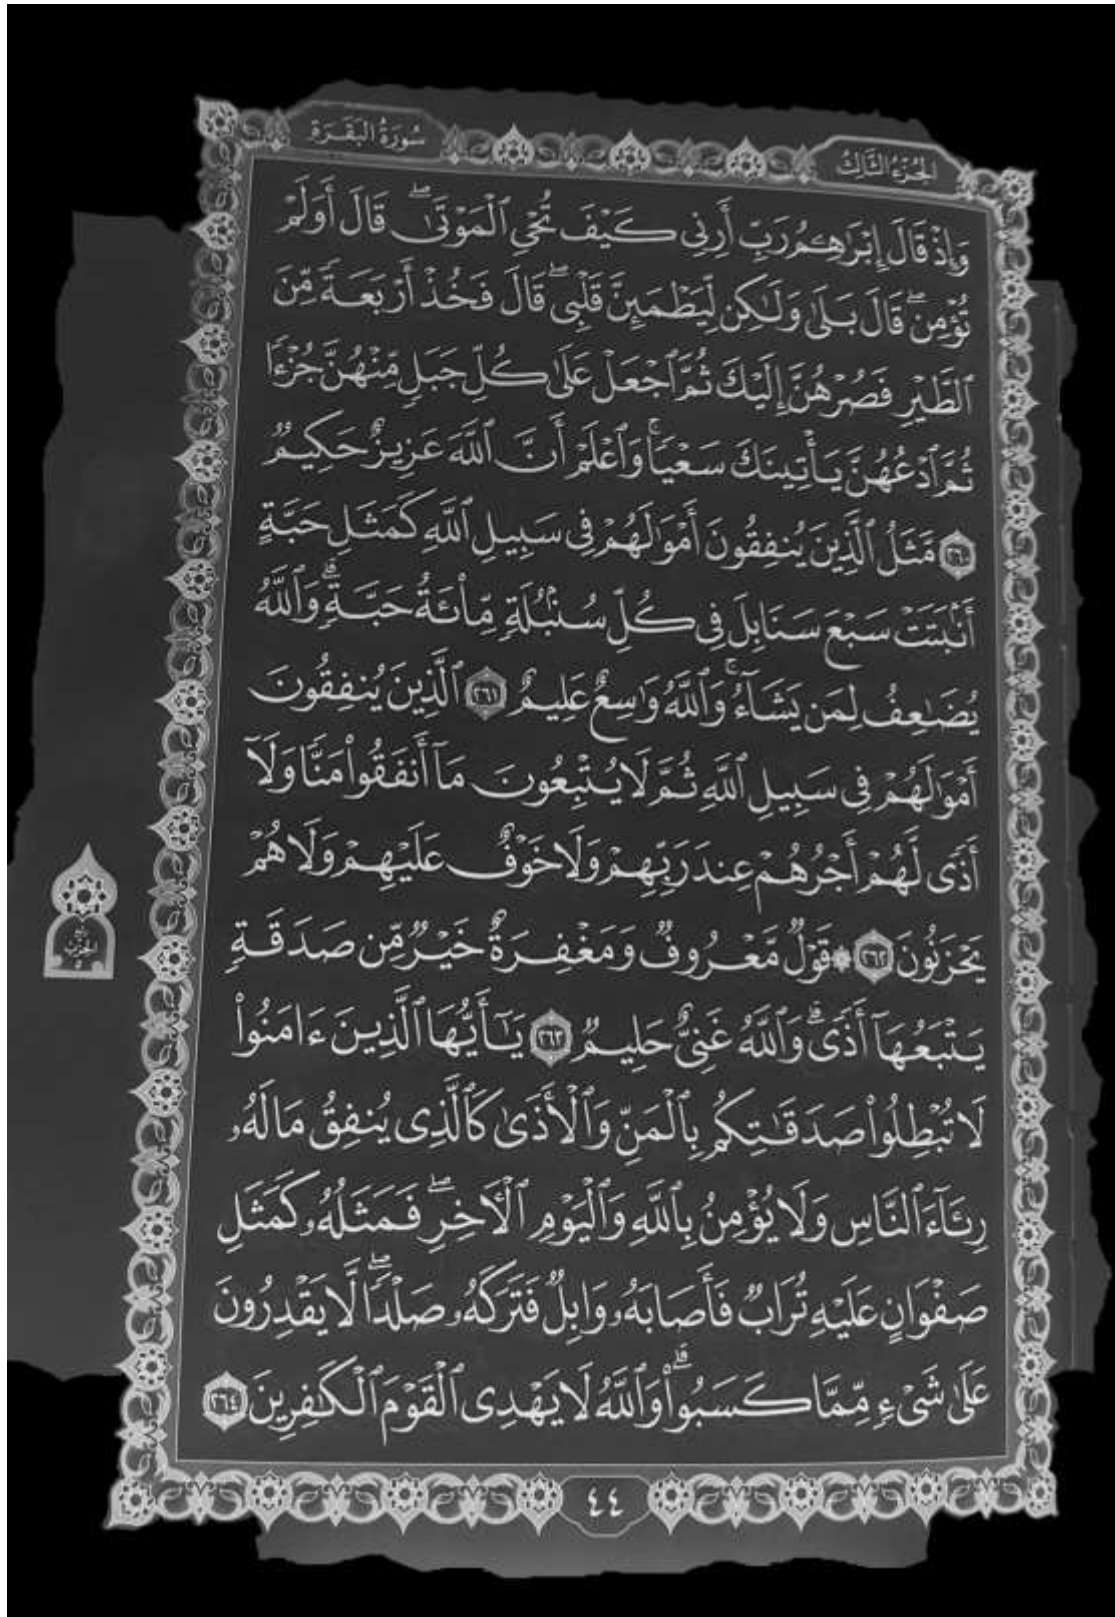 الجزء الثالث
سورة البقرة
وَإِذْ قَالَ إِبْرَٰهِـۧمُ رَبِّ أَرِنِى كَيْفَ تُحْىِ ٱلْمَوْتَىٰ ۖ قَالَ أَوَلَمْ
تُؤْمِن ۖ قَالَ بَلَىٰ وَلَـٰكِن لِّيَطْمَئِنَّ قَلْبِى ۖ قَالَ فَخُذْ أَرْبَعَةً مِّنَ
ٱلطَّيْرِ فَصُرْهُنَّ إِلَيْكَ ثُمَّ ٱجْعَلْ عَلَىٰ كُلِّ جَبَلٍ مِّنْهُنَّ جُزْءًا
ثُمَّ ٱدْعُهُنَّ يَأْتِينَكَ سَعْيًا ۚ وَٱعْلَمْ أَنَّ ٱللَّهَ عَزِيزٌ حَكِيمٌ
٢٦٠ مَّثَلُ ٱلَّذِينَ يُنفِقُونَ أَمْوَٰلَهُمْ فِى سَبِيلِ ٱللَّهِ كَمَثَلِ حَبَّةٍ
أَنۢبَتَتْ سَبْعَ سَنَابِلَ فِى كُلِّ سُنۢبُلَةٍ مِّا۟ئَةُ حَبَّةٍ ۗ وَٱللَّهُ
يُضَـٰعِفُ لِمَن يَشَآءُ ۚ وَٱللَّهُ وَٰسِعٌ عَلِيمٌ ٢٦١ ٱلَّذِينَ يُنفِقُونَ
أَمْوَٰلَهُمْ فِى سَبِيلِ ٱللَّهِ ثُمَّ لَا يُتْبِعُونَ مَآ أَنفَقُوا۟ مَنًّا وَلَآ
أَذًى لَّهُمْ أَجْرُهُمْ عِندَ رَبِّهِمْ وَلَا خَوْفٌ عَلَيْهِمْ وَلَا هُمْ
يَحْزَنُونَ ٢٦٢ ۞ قَوْلٌ مَّعْرُوفٌ وَمَغْفِرَةٌ خَيْرٌ مِّن صَدَقَةٍ
يَتْبَعُهَآ أَذًى ۗ وَٱللَّهُ غَنِىٌّ حَلِيمٌ ٢٦٣ يَـٰٓأَيُّهَا ٱلَّذِينَ ءَامَنُوا۟
لَا تُبْطِلُوا۟ صَدَقَـٰتِكُم بِٱلْمَنِّ وَٱلْأَذَىٰ كَٱلَّذِى يُنفِقُ مَالَهُۥ
رِئَآءَ ٱلنَّاسِ وَلَا يُؤْمِنُ بِٱللَّهِ وَٱلْيَوْمِ ٱلْـَٔاخِرِ ۖ فَمَثَلُهُۥ كَمَثَلِ
صَفْوَانٍ عَلَيْهِ تُرَابٌ فَأَصَابَهُۥ وَابِلٌ فَتَرَكَهُۥ صَلْدًا ۖ لَّا يَقْدِرُونَ
عَلَىٰ شَىْءٍ مِّمَّا كَسَبُوا۟ ۗ وَٱللَّهُ لَا يَهْدِى ٱلْقَوْمَ ٱلْكَـٰفِرِينَ ٢٦٤
٤٤